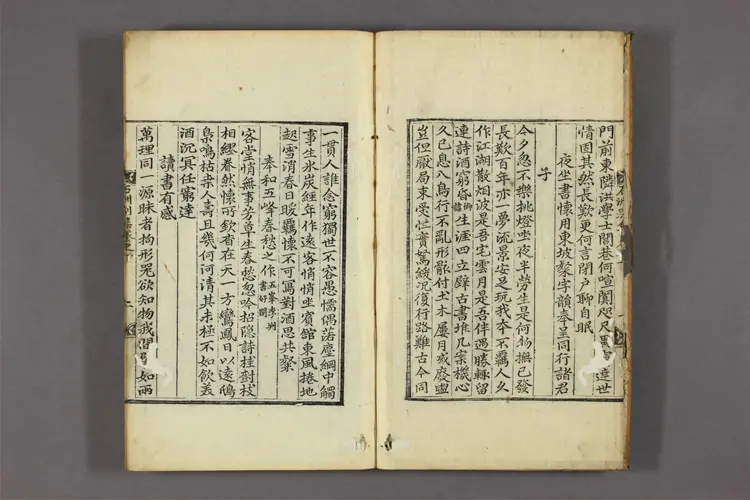 門前東隣洪學士閭巷何喧闐咫尺風
情固其然長歎更何言閉戶聊自眠
夜坐書懷用東坡粲字韻奉呈同行諸君
子
今夕忽不樂挑燈坐夜半勞生是何物撫已發
長歎百年亦一夢流景安足玩我本不羈人久
作江湖散烟波是吾宅雲月是吾伴遇勝輒留
連詩酒窮昏生涯四立壁古書堆几案機心
久已息入鳥行不亂形骸付土木屢月或廢盥
豈但厭局束受性實駑緩況復行路難古今同
一貫人誰念窮獨世不容愚懦偶落塵網中觸
事生氷炭經年作遠客悄悄坐賓館東風捲地
起雪消春日暖羈懷不可寫對酒思共粲
奉和五峯春愁之作 五峯李 好閔
客堂悄無事芳草生春愁忽吟招隱詩挂對枝
相繆眷然懷所欽香在天一方鸞鳳日以遠鴟
梟鳴枯桑人壽且幾何河清其未極不如飲美
酒沉冥任窮達
讀書有感
萬理同一源昧者拘形冤欲知物我 如兩